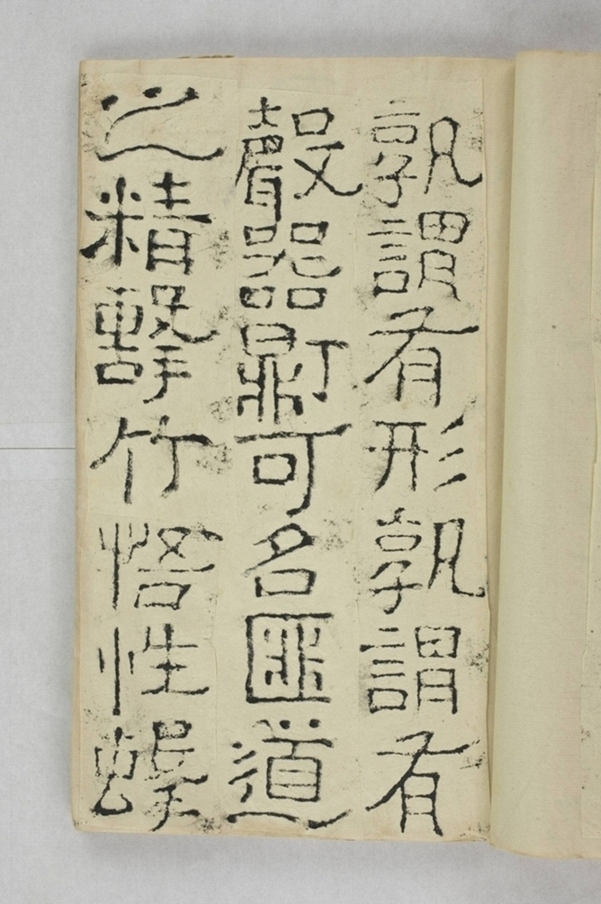 孰謂有形孰謂有
聲器則可名匪道
之精擊竹悟性擊